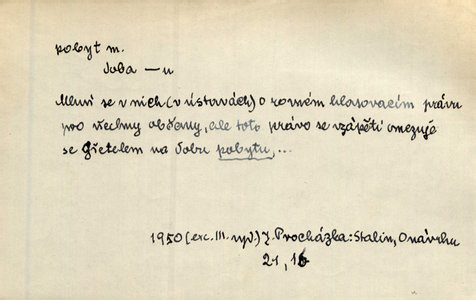 pobyt m.
doba —u
Mluví se v nich (v ústavách) o rovném hlasovacím právu
pro všechny občany, ale toto právo se vzápětí omezuje
se zřetelem na dobu pobytu, ...
1950 (exc. III. vyd.) J. Procházka: Stalin, O návrhu
21, 16